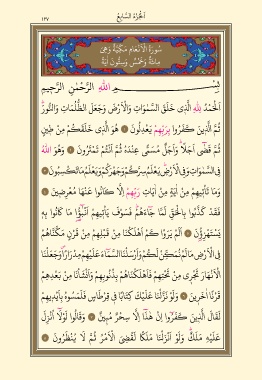 الجزء السابع
١٢٧
سورة الانعام مكية وهى
مائة وخمس وستون آية
بسم الله الرحمن الرحيم
الحمد لله الذى خلق السموات والارض وجعل الظلمات والنور
ثم الذين كفروا بربهم يعدلون هو الذى خلقكم من طين
ثم قضى اجلا واجل مسمى عنده ثم انتم تمترون وهو الله
فى السموات وفى الارض يعلم سركم وجهركم ويعلم ما تكسبون
وما تأتيهم من آية من آيات ربهم الا كانوا عنها معرضين
فقد كذبوا بالحق لما جاءهم فسوف يأتيهم انبؤا ما كانوا به
يستهزؤن الم يروا كم اهلكنا من قبلهم من قرن مكناهم
فى الارض ما لم نمكن لكم وارسلنا السماء عليهم مدرارا وجعلنا
الانهار تجرى من تحتهم فاهلكناهم بذنوبهم وانشأنا من بعدهم
قرنا آخرين ولو نزلنا عليك كتابا فى قرطاس فلمسوه بايديهم
لقال الذين كفروا ان هذا الا سحر مبين وقالوا لولا انزل
عليه ملك ولو انزلنا ملكا لقضى الامر ثم لا ينظرون